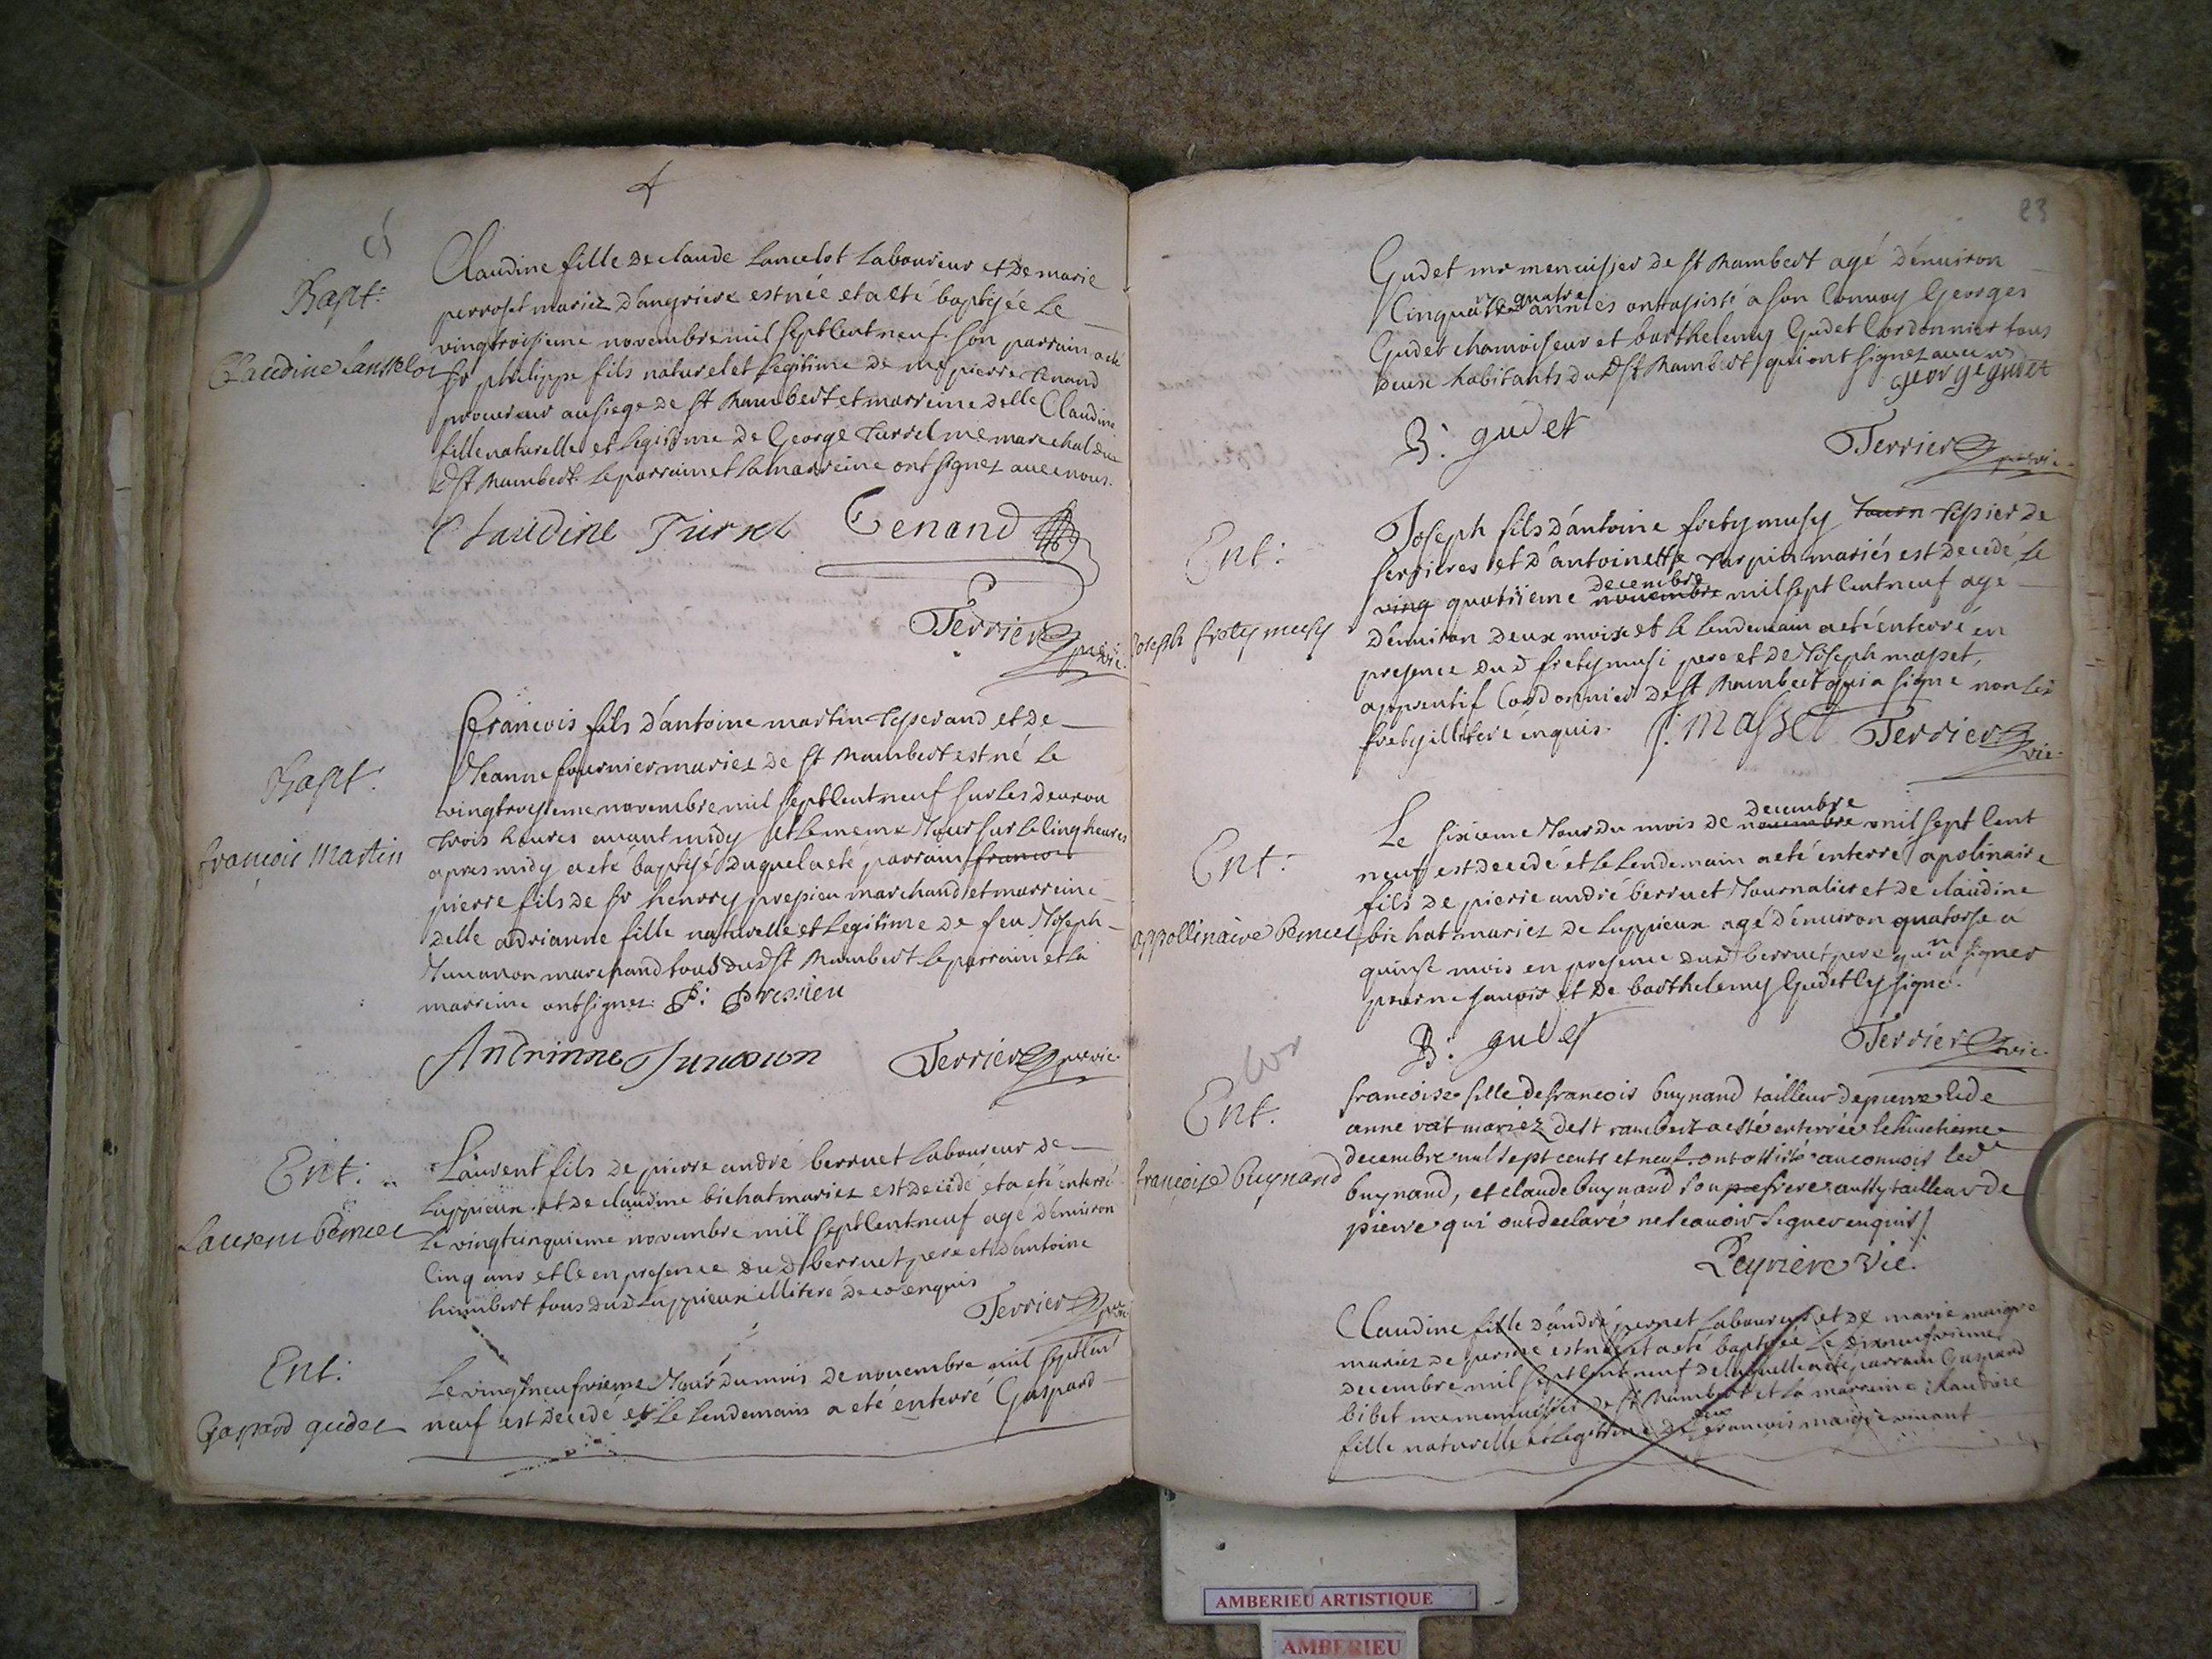 Bapt:
Claudine Lansselot
Claudine fille de claude Lancelot Laboureur et de marie
perroset mariez d'angrieres est née et a eté baptisée le
vingtroisieme novembre mil sept cent neuf son parrain a eté
Sr philippe fils naturel et legitime de me pierre Tenand
procureur au siege de st Rambert et marreine delle Claudine
fille naturelle et legitime de George Turrel me marechal dud
st Rambert. Le parrain et la marreine ont signez avec nous.
Claudine Turrel Tenand
Terrier pre vic.
Bapt.
françois Martin
francois fils d'antoine martin tisserand et de
Jeanne fournier mariez de st Rambert est né le
vingtroisieme novembre mil sept cent neuf sur les deux ou
trois heures avant midy et le meme Jour sur le cinq heures
apres midy a eté baptisé duquel a eté parrain francois
pierre fils de sr henrry pressieu marchand et marreine
delle adrianne fille naturelle et legitime de feu Joseph
Juvanon marchand tous dud st Rambert le parrain et la
marreine ont signez. P: Pressieu
Andrinne Juvanon Terrier pre vic.
Ent:
Laurent Berruet
Laurent fils de pierre andré berruet laboureur de
Luppieux et de claudine bichat mariez est decedé et a eté enterré
le vingtcinquieme novembre mil sept cent neuf agé d'environ
cinq ans et ce en presence dud berruet pere et d'antoine
humbert tous dud Luppieux illiteré de ce enquis
Terrier pre vic
Ent:
Gaspard gudet
Le vingtneufvieme Jour du mois de novembre mil sept cent
neuf est decedé et le lendemain a eté enterré Gaspard
23
Gudet me menuisier de st Rambert agé d'environ
Cinquante quatre années ont assisté a son Convoy Georges
Gudet chamoiseur et barthelemy Gudet Cordonnier tous
deux habitants dud st Rambert qui ont signez avec ns
george gudet
B: gudet
Terrier pre vic.
Ent:
Joseph fretymusy
Joseph fils d'antoine fretymusy tourn tissier de
serrieres et d'antoinette Tarpin mariés est decedé le
ving quatrieme novembre decembre mil sept cent neuf agé
d'environ deux mois et le lendemain a eté enterré en
presence dud fretymusi pere et de Joseph masset,
apprentif Cordonnier de st Rambert qui a signé non led
frety illiteré enquis. J. Masset Terrier vic.
Ent:
appollinaire Berruet
Le sixieme Jour du mois de novembre decembre mil sept cent
neuf est decedé et le lendemain a eté enterré apolinaire
fils de pierre andré berruet Journalier et de claudine
bichat mariez de luppieux agé d'environ quatorse a
quinse mois en presence dud berruet pere qui n'a signer
pour ne savoir et de barthelemy Gudet Cy signé.
B: gudet
Terrier vic.
Ent.
françoise Buynand
francoise fille de francois buynand tailleur de pierre et de
anne rat mariez de st rambert a esté enterrée le huictieme
decembre mil sept cents et neuf. ont assisté au convoir led
buynand, et claude buynand son pre frere aussy tailleur de
pierre qui ont declaré ne scavoir signer enquis.
Peyriere vic.
Claudine fille d'andré pernet laboureur et de marie maigre
mariez de est née et a eté baptisée le dixneufvieme
decembre mil sept cent neuf de laquelle a eté parrain Gaspard
bibet me menuisier de st Rambert et la marreine Claudine
fille naturelle et legitime de feu francois maigre vivant
AMBERIEU ARTISTIQUE
AMBERIEU